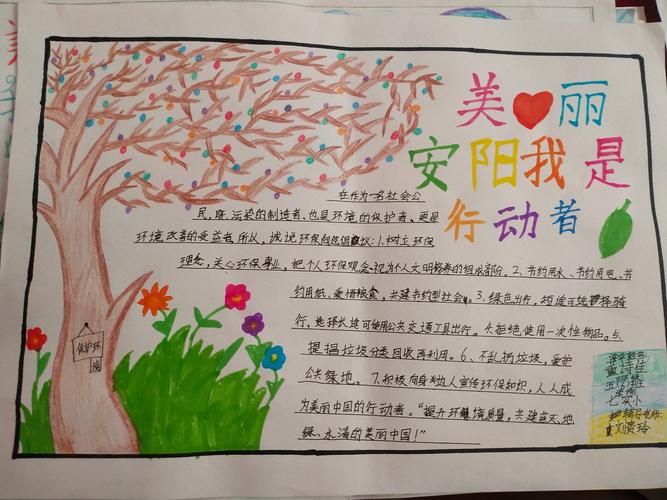 美丽
安阳我是
行动者
在作为一名社会公
民,既污染的制造者、也是环境的保护者、更是
环境改善的受益者,所以,诚说环保向您倡议:1.树立环保
理念,关心环保事业,把个人环保观念视为个人文明修养的组成部分。2、节约用水、节约用电、节
约用纸、爱惜粮食,共建节约型社会。3、绿色出行,短途可地择骑
行,选择长途可使用公共交通工具出行。4.拒绝使用一次性物品。5、
提揭垃圾分类回收再利用。6、不乱扔垃圾,爱护
公共绿地。7.积极向身边人宣传环保知识,人人成
为美丽中国的行动者。“提升环境质量,共建蓝天、地
绿、水清的美丽中国!”
保护环
境
五班
辅导老师: